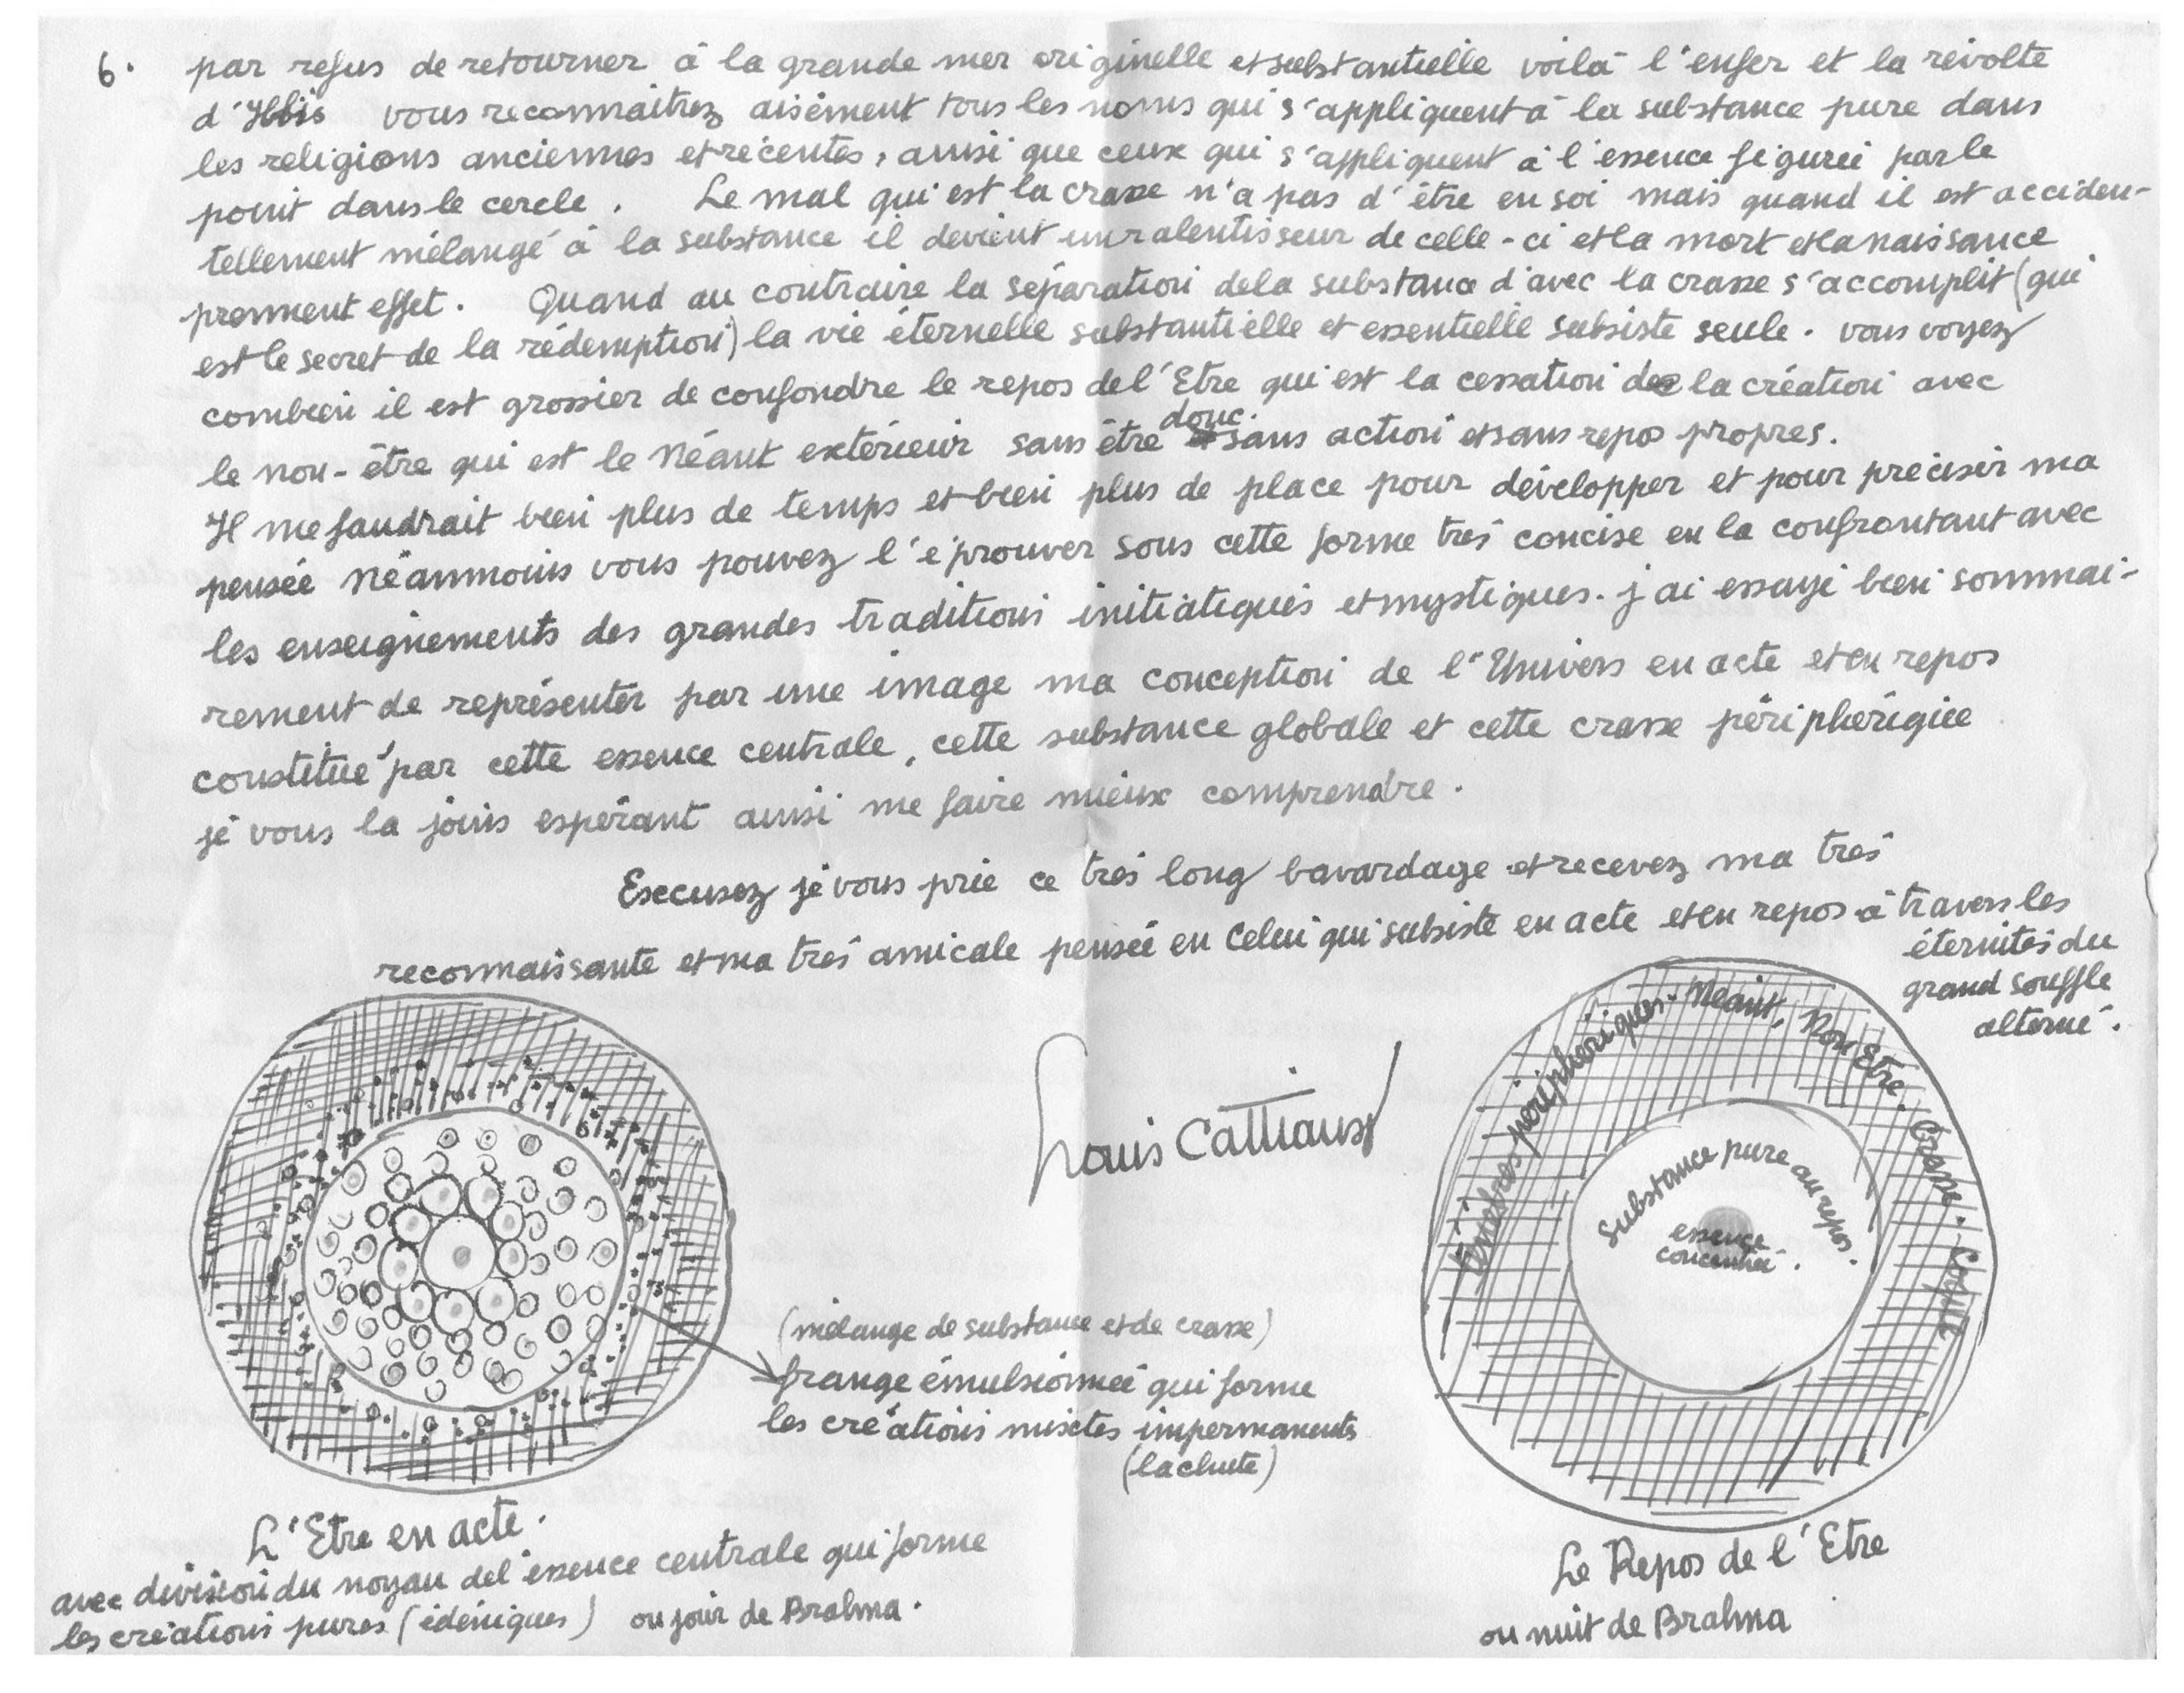 6. par refus de retourner à la grande mer originelle et substantielle voilà l'enfer et la révolte
d'Iblis vous reconnaitrez aisément tous les noms qui s'appliquent à la substance pure dans
les religions anciennes et récentes, ainsi que ceux qui s'appliquent à l'essence figurée par le
point dans le cercle. Le mal qui est la crasse n'a pas d'être en soi mais quand il est acciden-
tellement mélangé à la substance il devient un ralentisseur de celle-ci et la mort et la naissance
prennent effet. Quand au contraire la séparation de la substance d'avec la crasse s'accomplit (qui
est le secret de la rédemption) la vie éternelle substantielle et essentielle subsiste seule. vous voyez
combien il est grossier de confondre le repos de l'Etre qui est la cessation de la création avec
le non-être qui est le Néant extérieur sans être donc sans action et sans repos propres.
Il me faudrait bien plus de temps et bien plus de place pour développer et pour préciser ma
pensée Néanmoins vous pouvez l'éprouver sous cette forme très concise en la confrontant avec
les enseignements des grandes traditions initiatiques et mystiques. j'ai essayé bien sommai-
rement de représenter par une image ma conception de l'Univers en acte et en repos
constitué par cette essence centrale, cette substance globale et cette crasse périphérique
je vous la joins espérant ainsi me faire mieux comprendre.
Excusez je vous prie ce très long bavardage et recevez ma très
reconnaissante et ma très amicale pensée en Celui qui subsiste en acte et en repos à travers les
éternités du
grand souffle
alterné.
Louis Cattiaux
Ténèbres périphériques. Néant, Non Etre. Crasse. Coque
Substance pure au repos.
essence
concentrée.
(mélange de substance et de crasse)
frange émulsionnée qui forme
les créations mixtes impermanents
(la chute)
L'Etre en acte.
avec division du noyau de l'essence centrale qui forme
les créations pures (édéniques) ou jour de Brahma.
Le Repos de l'Etre
ou nuit de Brahma